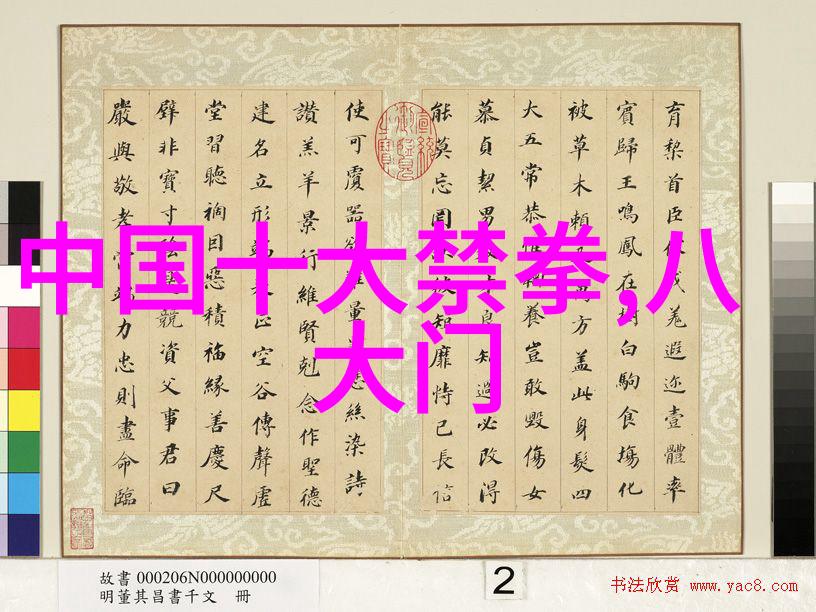 中国十大禁拳,八
大门
育棃首臣伏戎羌遐迩壹體率
賓歸王鳴鳳在樹白駒食場化
被草木賴及萬方蓋此身髮四
大五常恭惟鞠養豈敢毀傷女
慕貞絜男效才良知過必改得
能莫忘罔談彼短靡恃己長信
使可覆器欲難量墨悲絲染詩
讚羔羊景行維賢剋念作聖德
建名立形端表正空谷傳聲虛
堂習聽禍因惡積福緣善慶尺
璧非寶寸陰是競資父事君曰
嚴與敬孝當竭力忠則盡命臨
宣統御覽之寶
故書 000206N000000000
明董其昌書千文 冊
2
书法欣赏 www.yac8.com